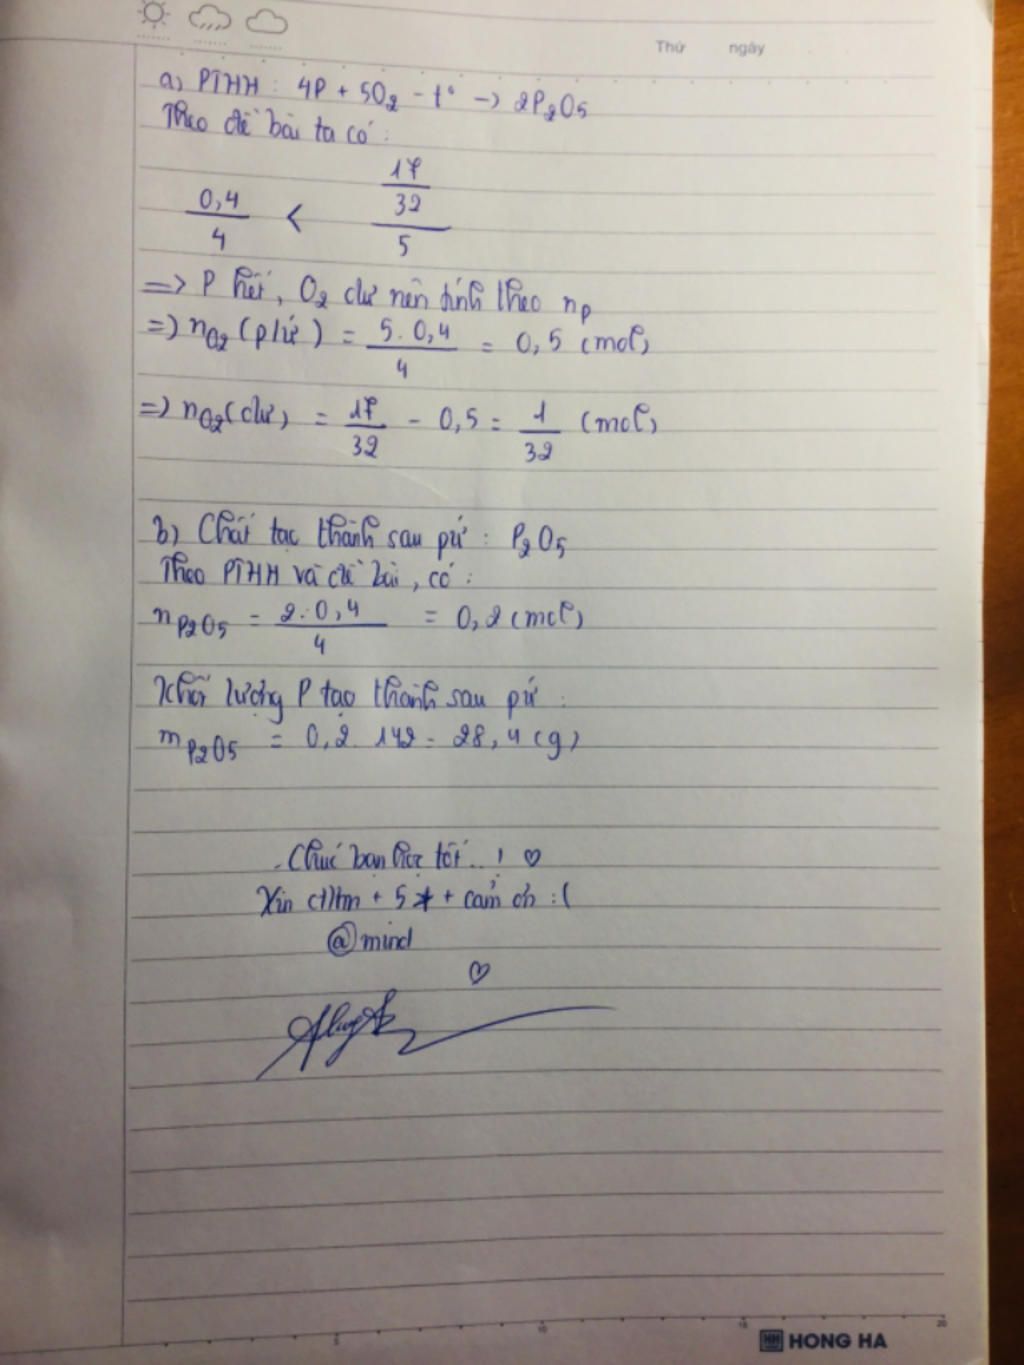 Thứ ngày
a) PTHH : 4P + 5O2 - t° -> 2P2O5
Theo đề bài ta có :
0,4/4 < 17/32/5
=> P hết, O2 dư nên tính theo nP
=> nO2 (pứ) = 5.0,4/4 = 0,5 (mol)
=> nO2 (dư) = 17/32 - 0,5 = 1/32 (mol)
b) Chất tạo thành sau pứ : P2O5
Theo PTHH và đề bài, có :
nP2O5 = 2.0,4/4 = 0,2 (mol)
Khối lượng P tạo thành sau pứ :
mP2O5 = 0,2.142 = 28,4 (g)
Chúc bạn học tốt..! ♡
Xin ctlhn + 5* + cảm ơn :(
@mind
♡
5 10 15 20
HONG HA